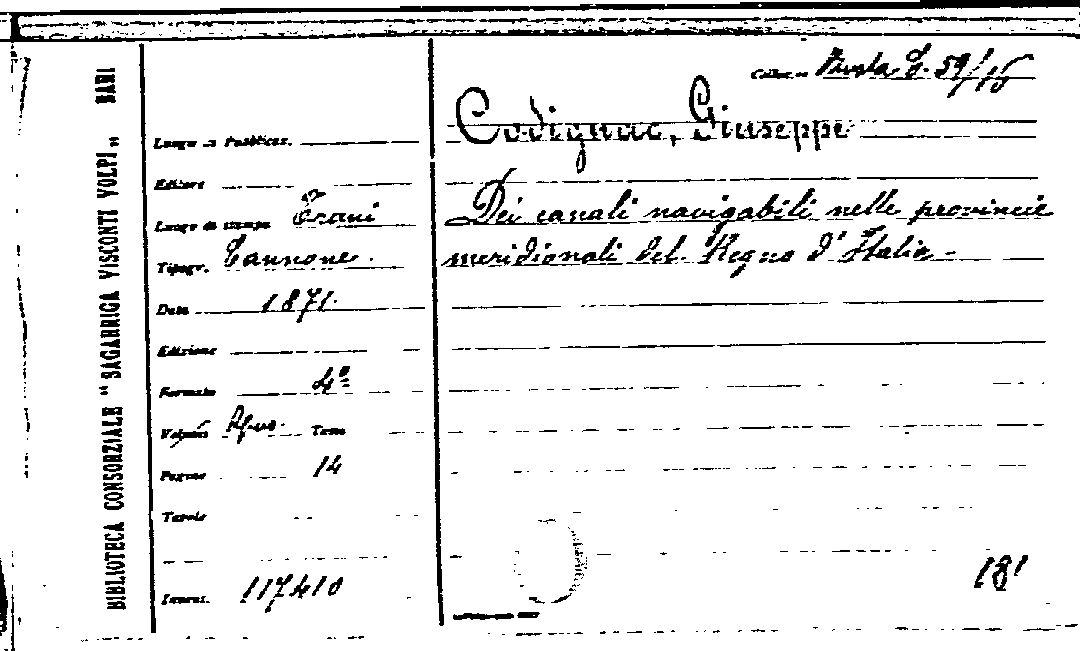 BIBLIOTECA CONSORZIALE " SAGARRIGA VISCONTI VOLPI „ BARI
Busta C. 59/15
Luogo di Pubblicaz.
Editore
Luogo di stampa Trani
Tipogr. Cannone.
Data 1871.
Edizione
Formato 4º
Volumi Opus. Tomo
Pagine 14
Tavole
Inventr. 117410
Codignac, Giuseppe
Dei canali navigabili nelle provincie
meridionali del Regno d'Italia -
181